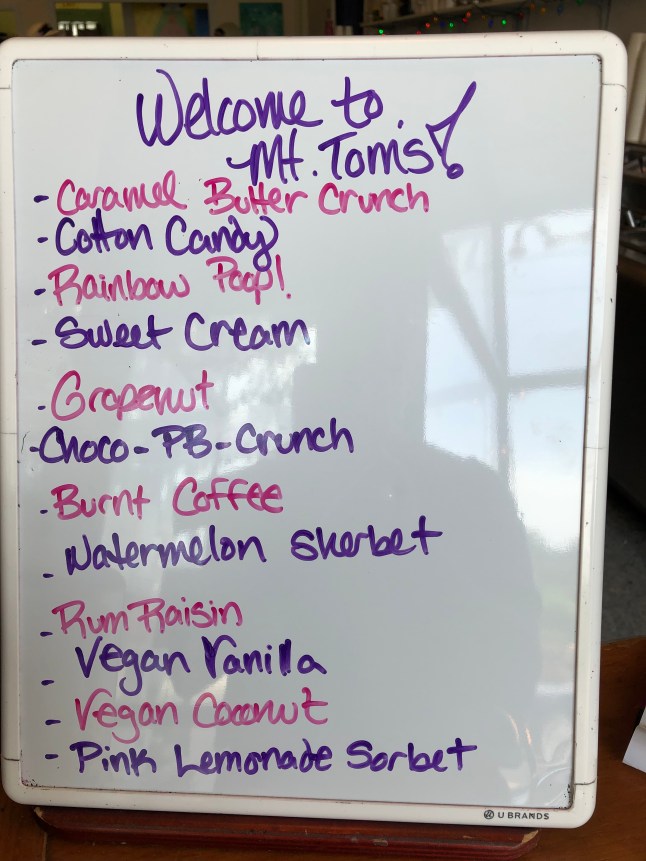 Welcome to
Mt. Tom's!
- Caramel Butter Crunch
- Cotton Candy
- Rainbow Poop!
- Sweet Cream
- Grapenut
- Choco-PB-Crunch
- Burnt Coffee
- Watermelon Sherbet
- Rum Raisin
- Vegan Vanilla
- Vegan Coconut
- Pink Lemonade Sorbet
U BRANDS